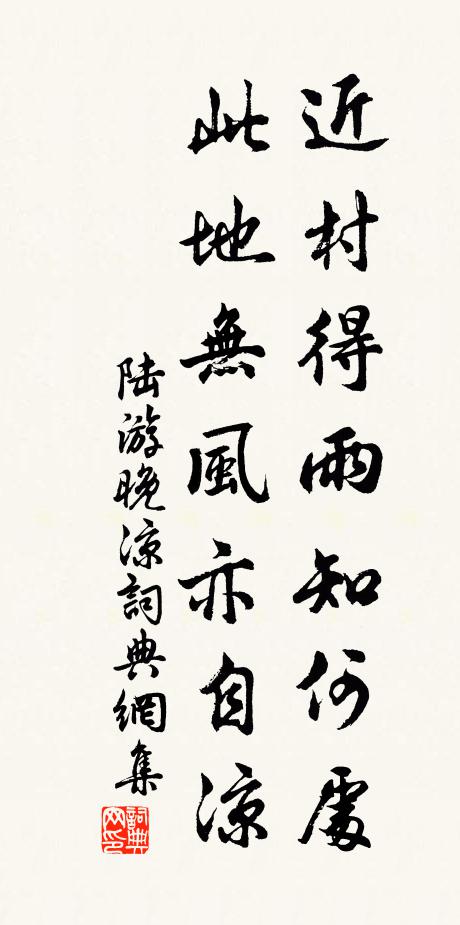 近村得雨知何處
此地無風亦自涼
陆游晚涼詞典網集
詞典网印